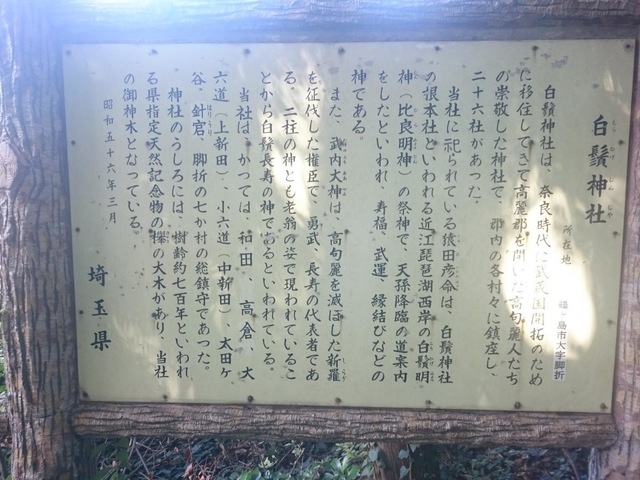 白鬚神社
しらひげじんじゃ
所在地 鶴ヶ島市大字脚折
白鬚神社は、奈良時代に武蔵国開拓のため
に移住してきて高麗郡を開いた高句麗人たち
の崇敬した神社で、郡内の各村々に鎮座し
二十六社があった。
当社に祀られている猿田彦命は、白鬚神社
の根本社といわれる近江琵琶湖西岸の白鬚明
神（比良明神）の祭神で、天孫降臨の道案内
をしたといわれ、寿福、武運、縁結びなどの
神である。
また、武内大神は、高句麗を滅ぼした新羅
しらぎ
を征伐した権臣で、勇武、長寿の代表者であ
る。二柱の神とも老翁の姿で現われているこ
とから白鬚長寿の神であるといわれている。
当社は、かつては、和田、高倉、大
六道（上新田）、小六道（中新田）、太田ヶ
谷、針宮、脚折の七か村の総鎮守であった。
神社のうしろには、樹齢約七百年といわれ
る県指定天然記念物の欅の大木があり、当社
の御神木となっている。
昭和五十六年三月
埼玉県